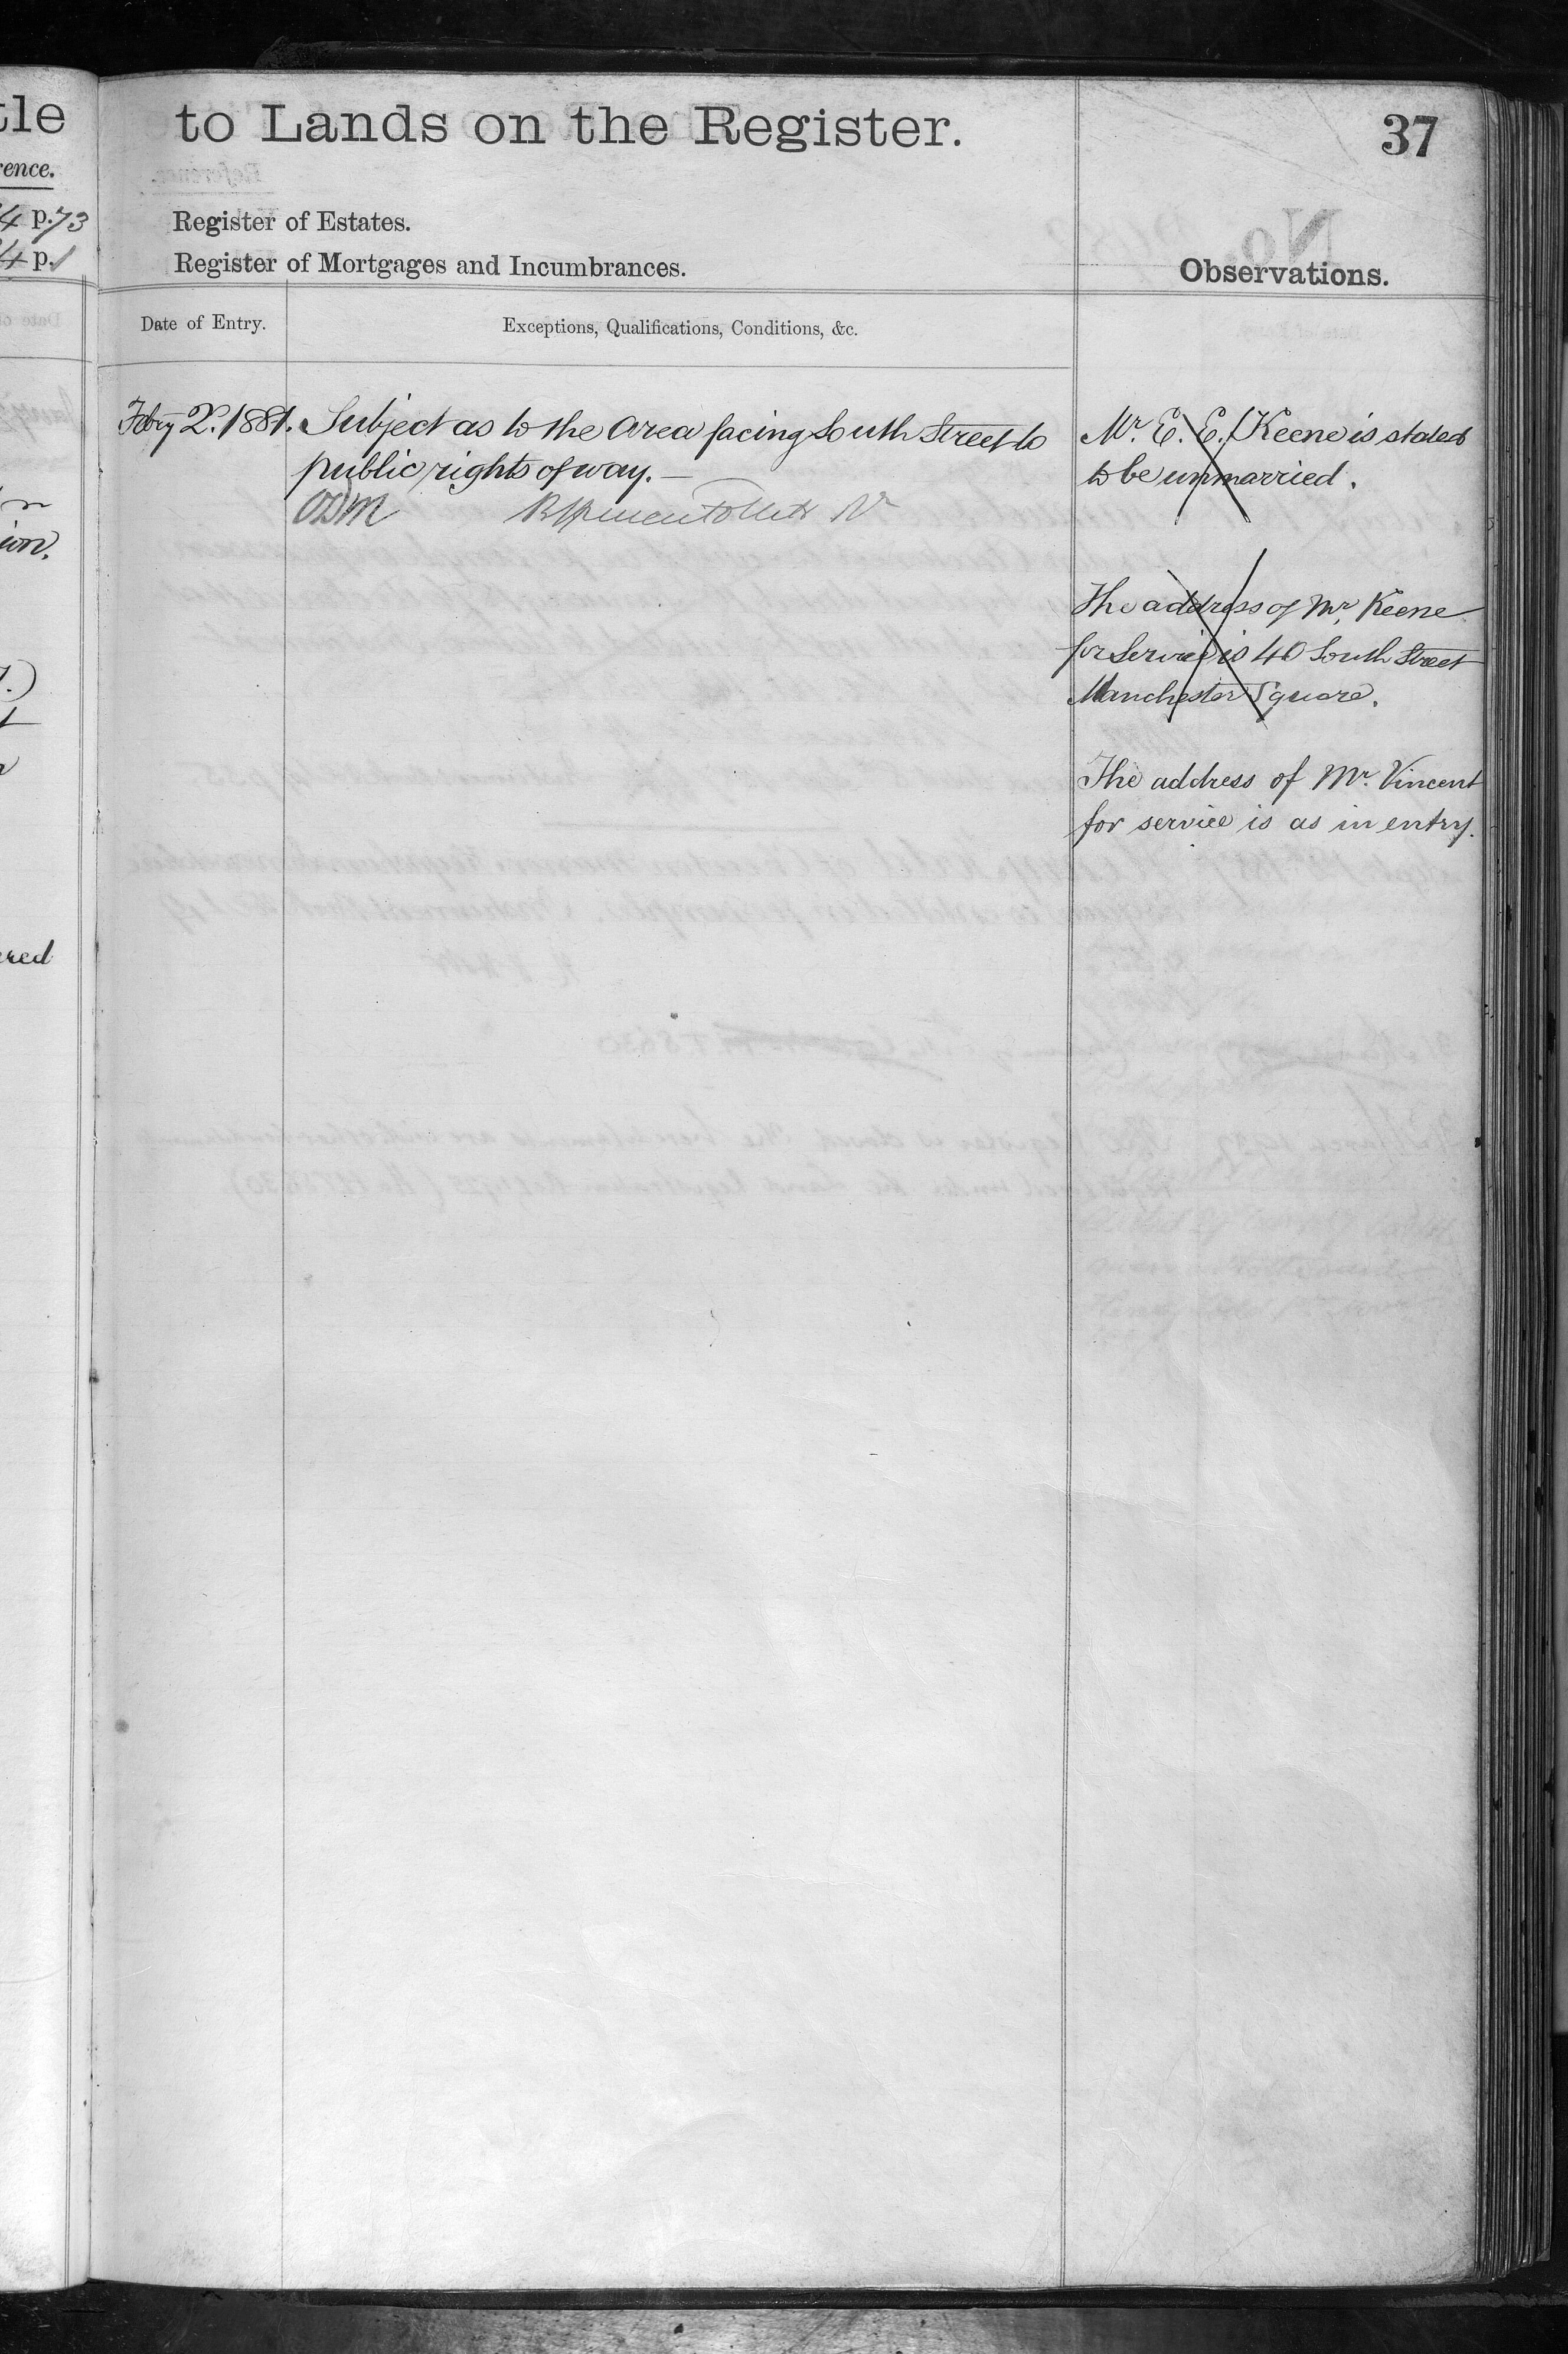 tle
rence.
4 p. 73
4 p. 1
ion.
ered
to Lands on the Register.
37
Register of Estates.
Register of Mortgages and Incumbrances.
Observations.
Date of Entry.
Exceptions, Qualifications, Conditions, &c.
Feby 2. 1881. Subject as to the area facing South Street to
public rights of way. —
Mr. E. E. Keene is stated
to be unmarried.
The address of Mr. Keene
for Service is 40 South Street
Manchester Square.
The address of Mr. Vincent
for service is as in entry.